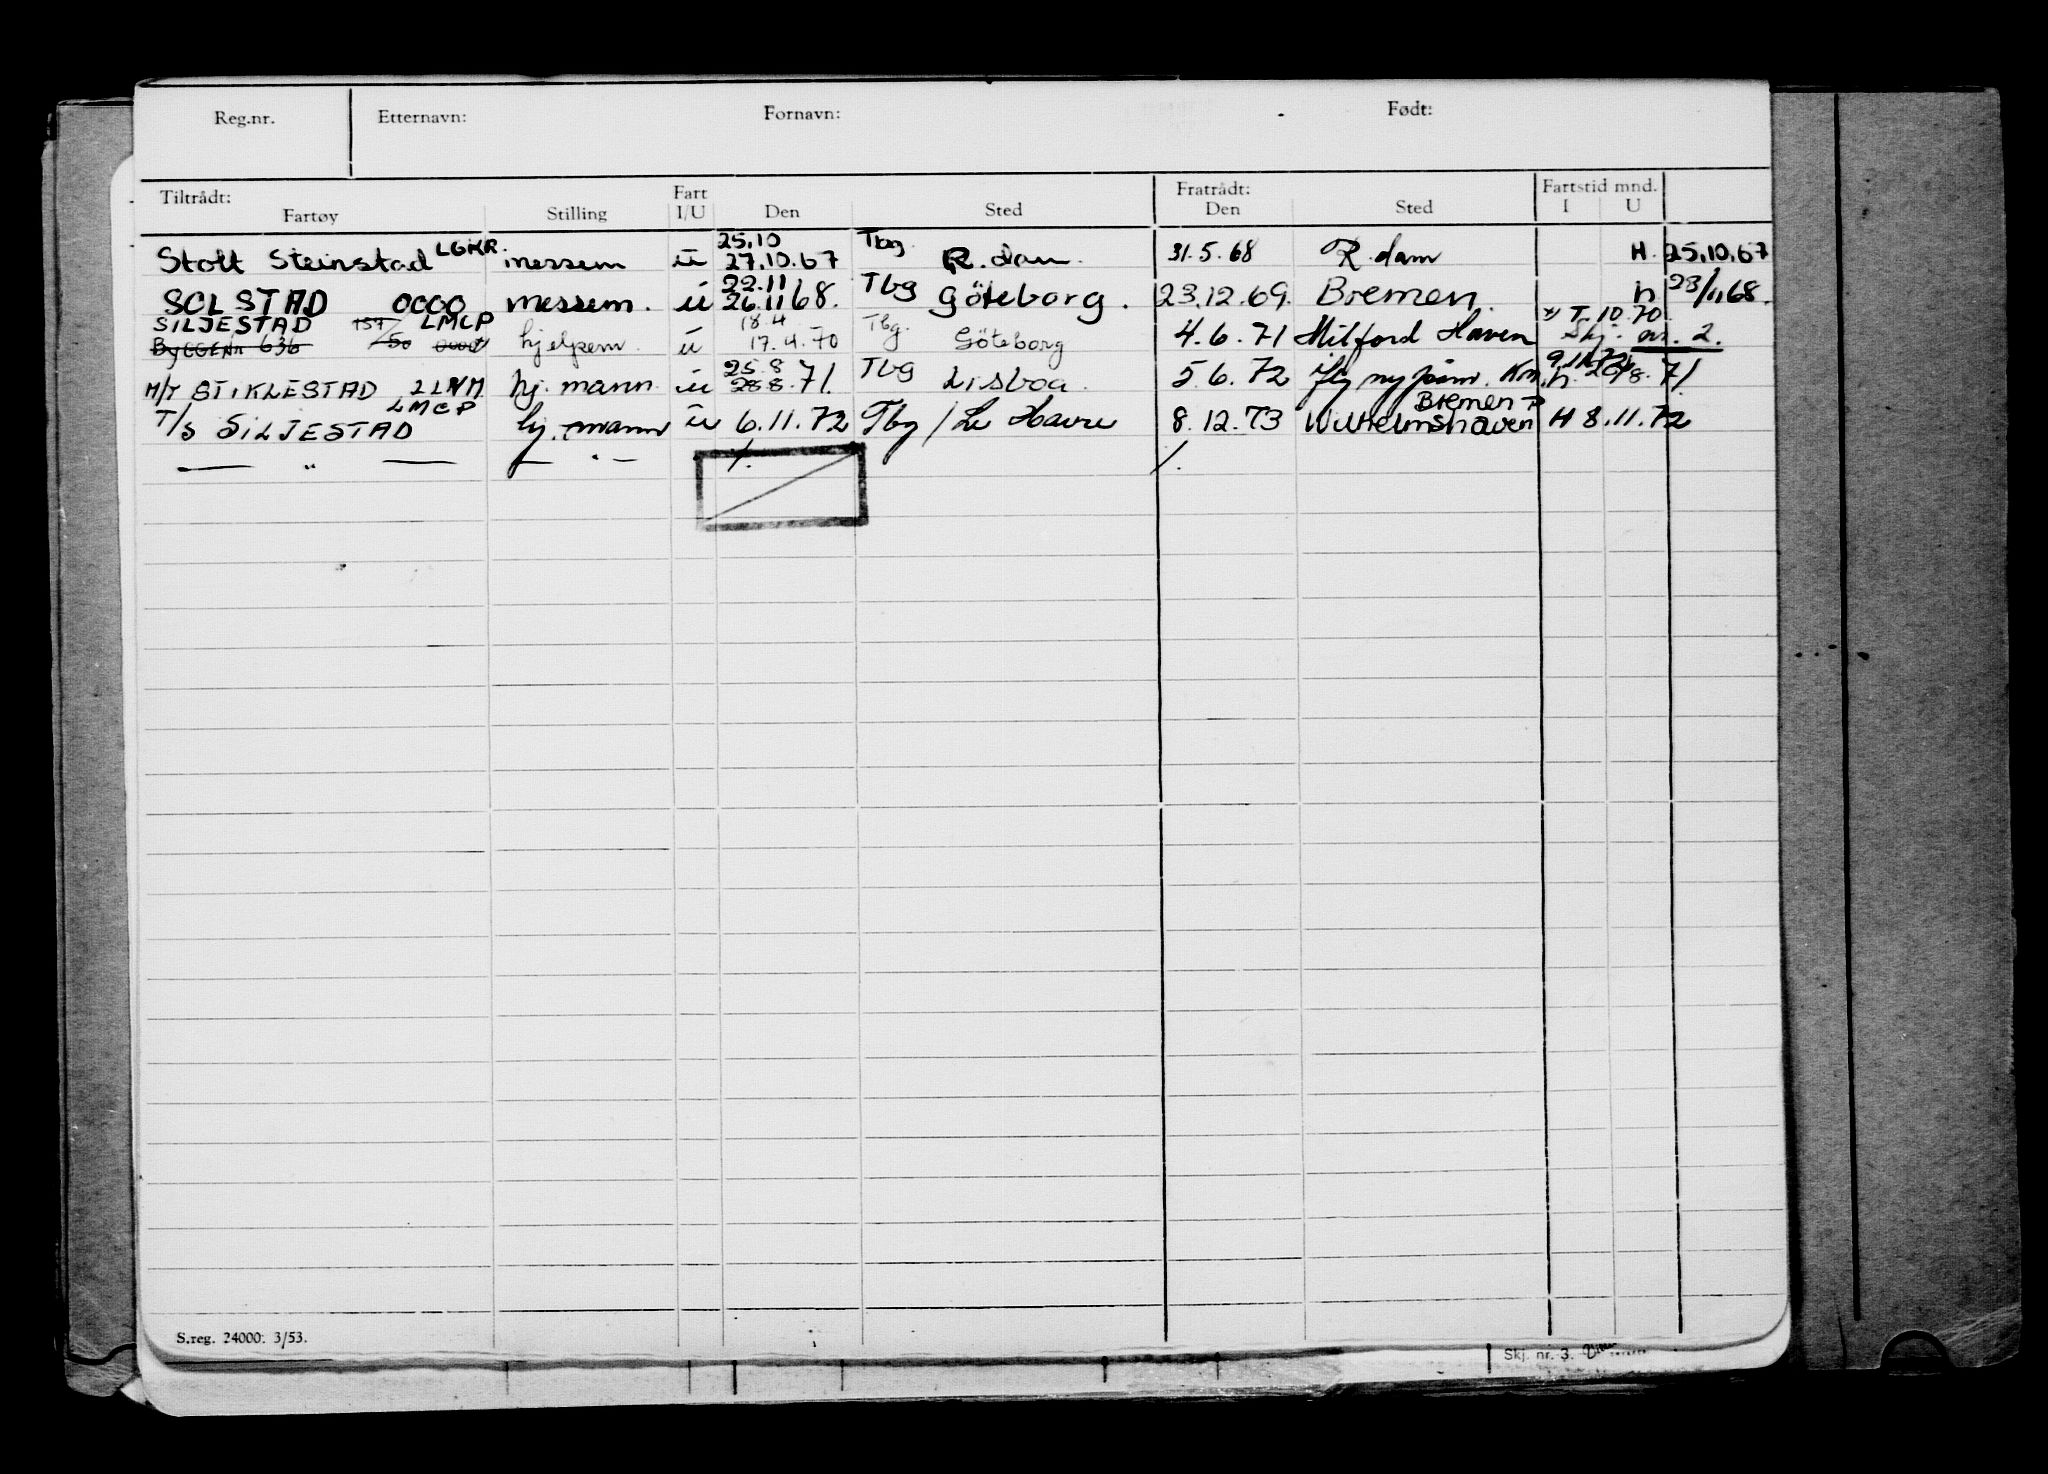 Reg.nr. Etternavn: Fornavn: Født:
Tiltrådt: Fart Fratrådt: Fartstid mnd.
Fartøy Stilling I/U Den Sted Den Sted I U
LGKR. 25.10 Tbg.
Stolt Steinstad messem u 27.10.67 R.dam. 31.5.68 R.dam H. 25.10.67
22.11 Tbg
SOLSTAD 0000 messem. u 26.11 68. Göteborg. 23.12.69. Bremen. h 28/11 68.
SILJESTAD 157/50 LMCP 18.4 Tbg. T. 10.70
BYGGENR 636 0000 hjelpem u 17.4.70 Göteborg 4.6.71 Milford Haven Skj. nr. 2.
25.8 Tbg
M/T STIKLESTAD LLNM hj.mann u 28.8.71. Lisboa. 5.6.72 h. 8.71.
LMCP Bremen
T/S SILJESTAD hj.mann u 6.11.72 Tbg / Le Havre 8.12.73 Wilhelmshaven H 8.11.72
— " — — " — /. /.
S.reg. 24000. 3/53.
Skj. nr. 3.